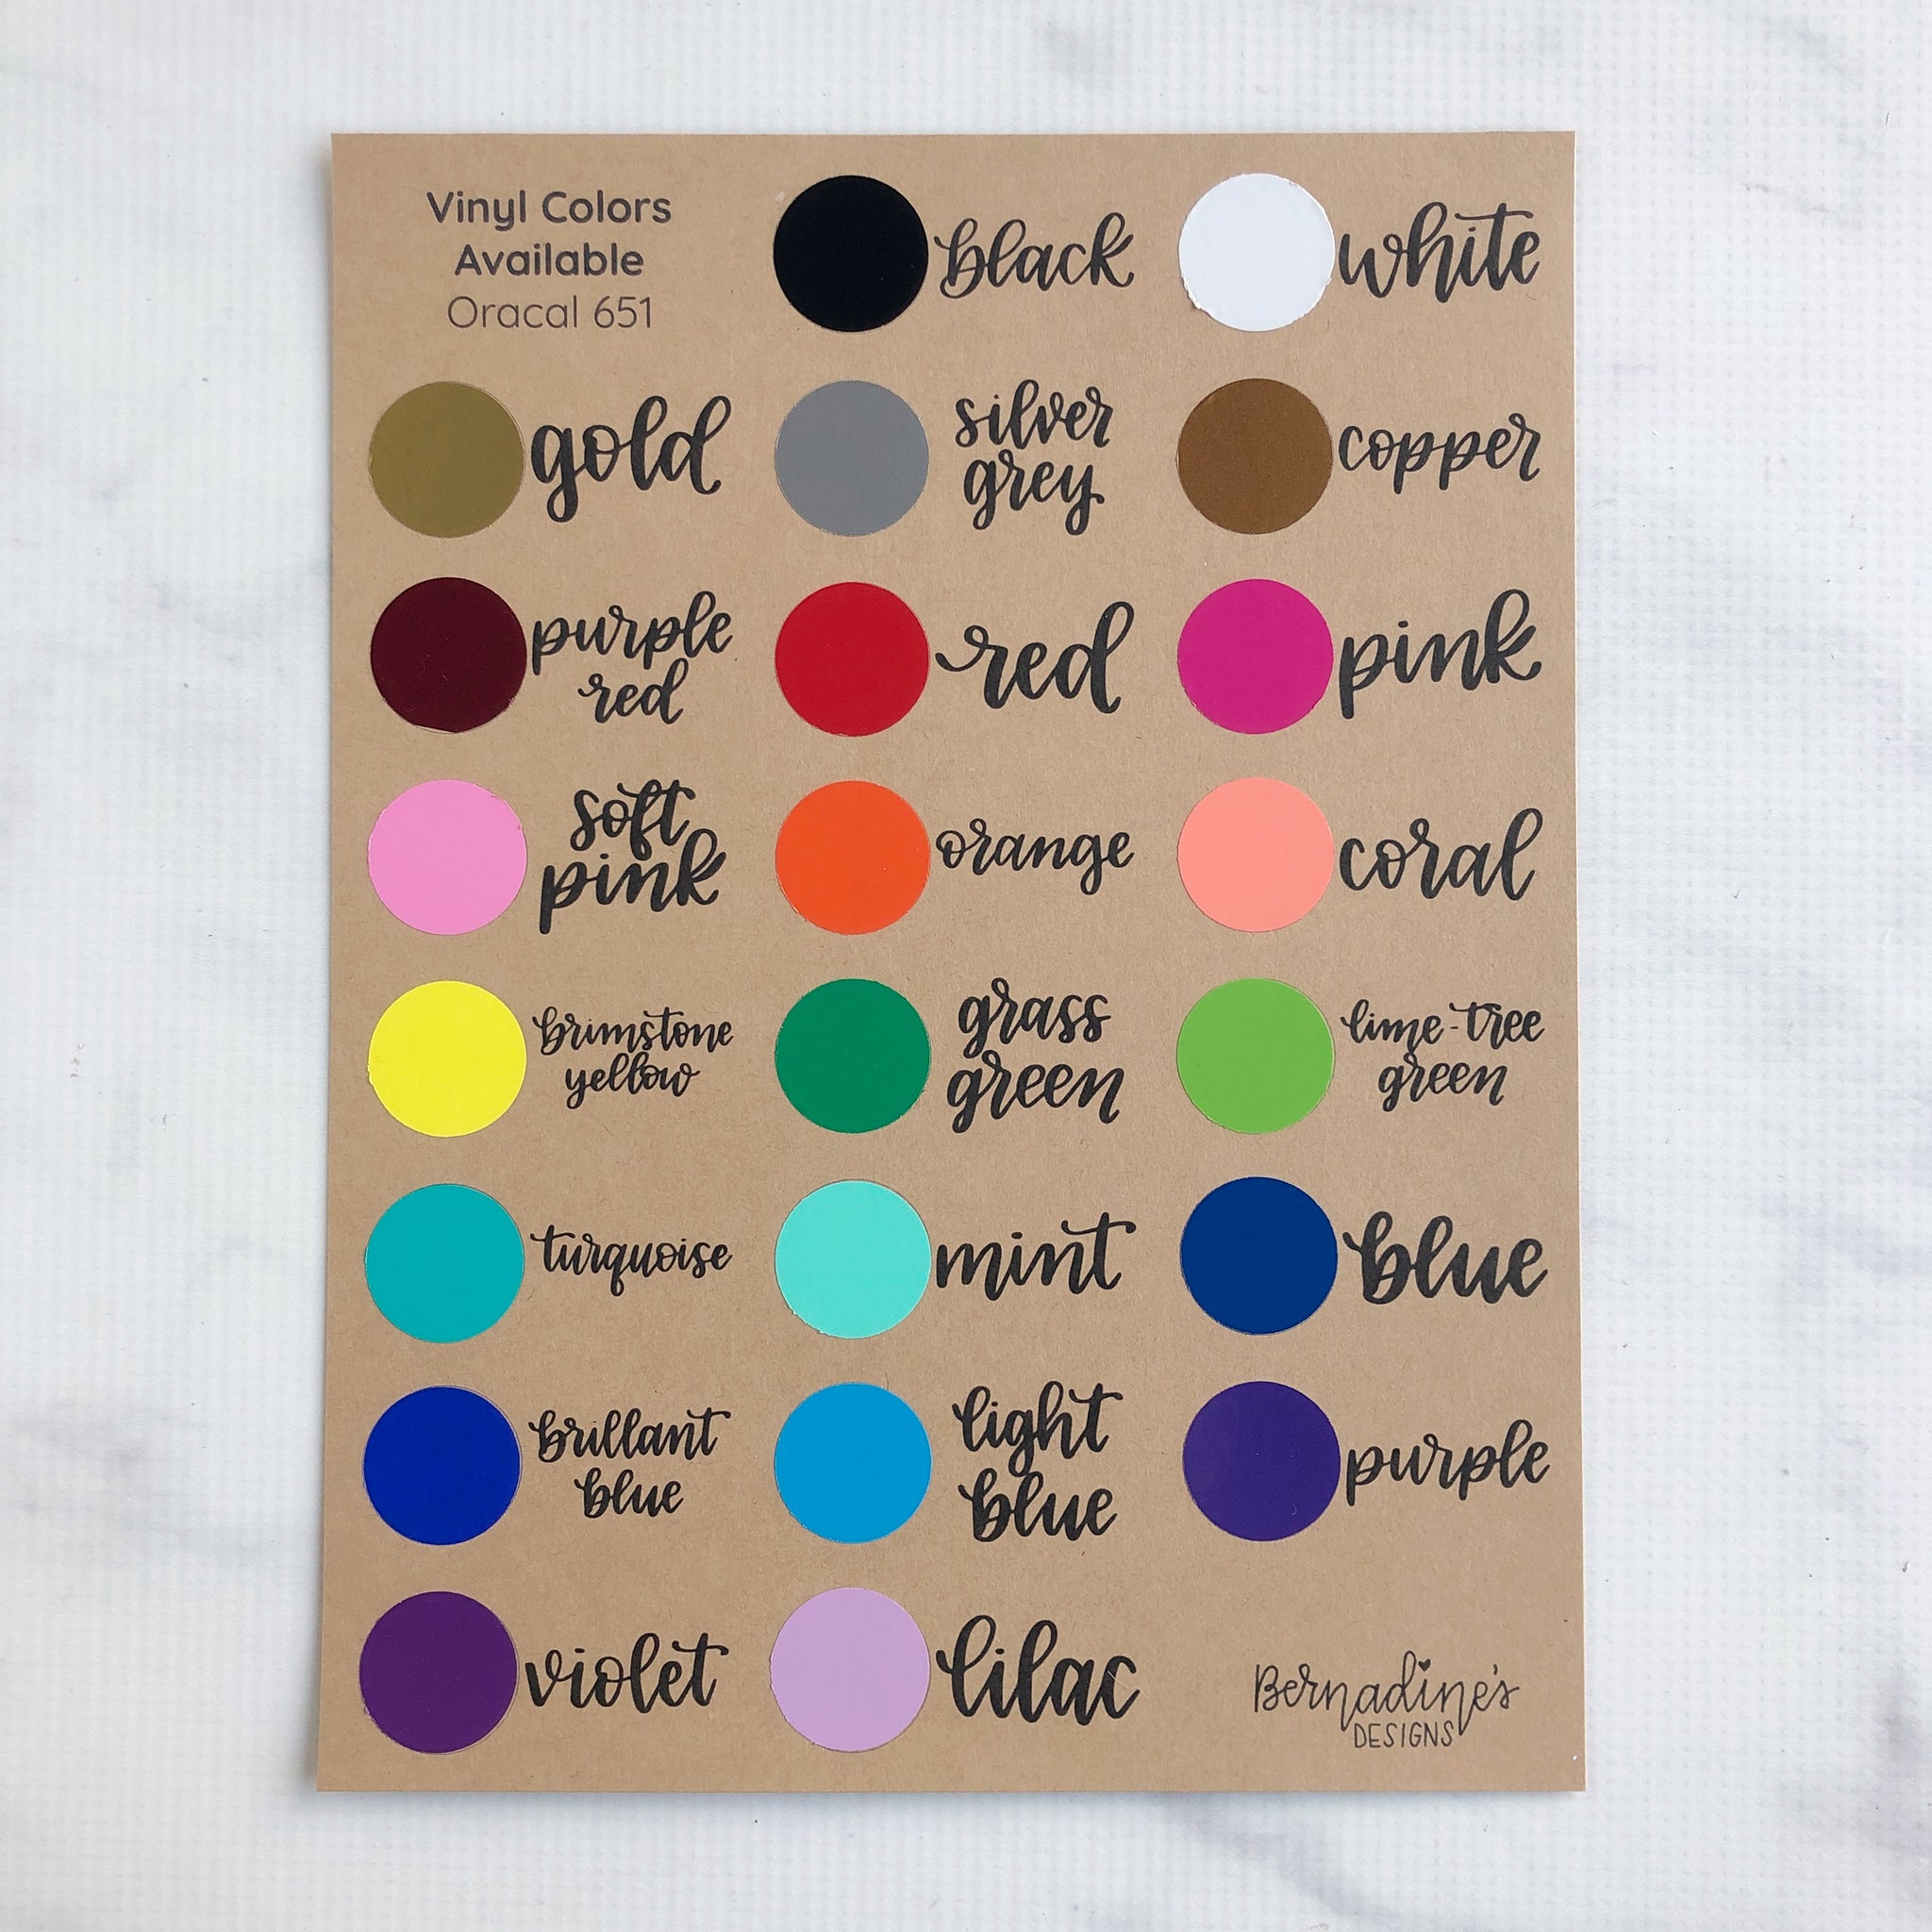 Vinyl Colors
Available
Oracal 651
black
white
gold
silver
grey
copper
purple
red
red
pink
soft
pink
orange
coral
brimstone
yellow
grass
green
lime-tree
green
turquoise
mint
blue
brillant
blue
light
blue
purple
violet
lilac
Bernadine's
DESIGNS